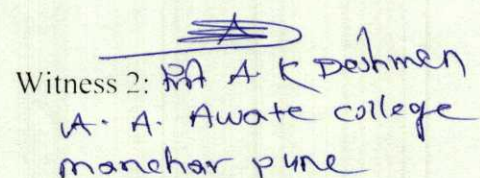 Witness 2: A. K Deshmen
A. A. Awate college
manchar pune